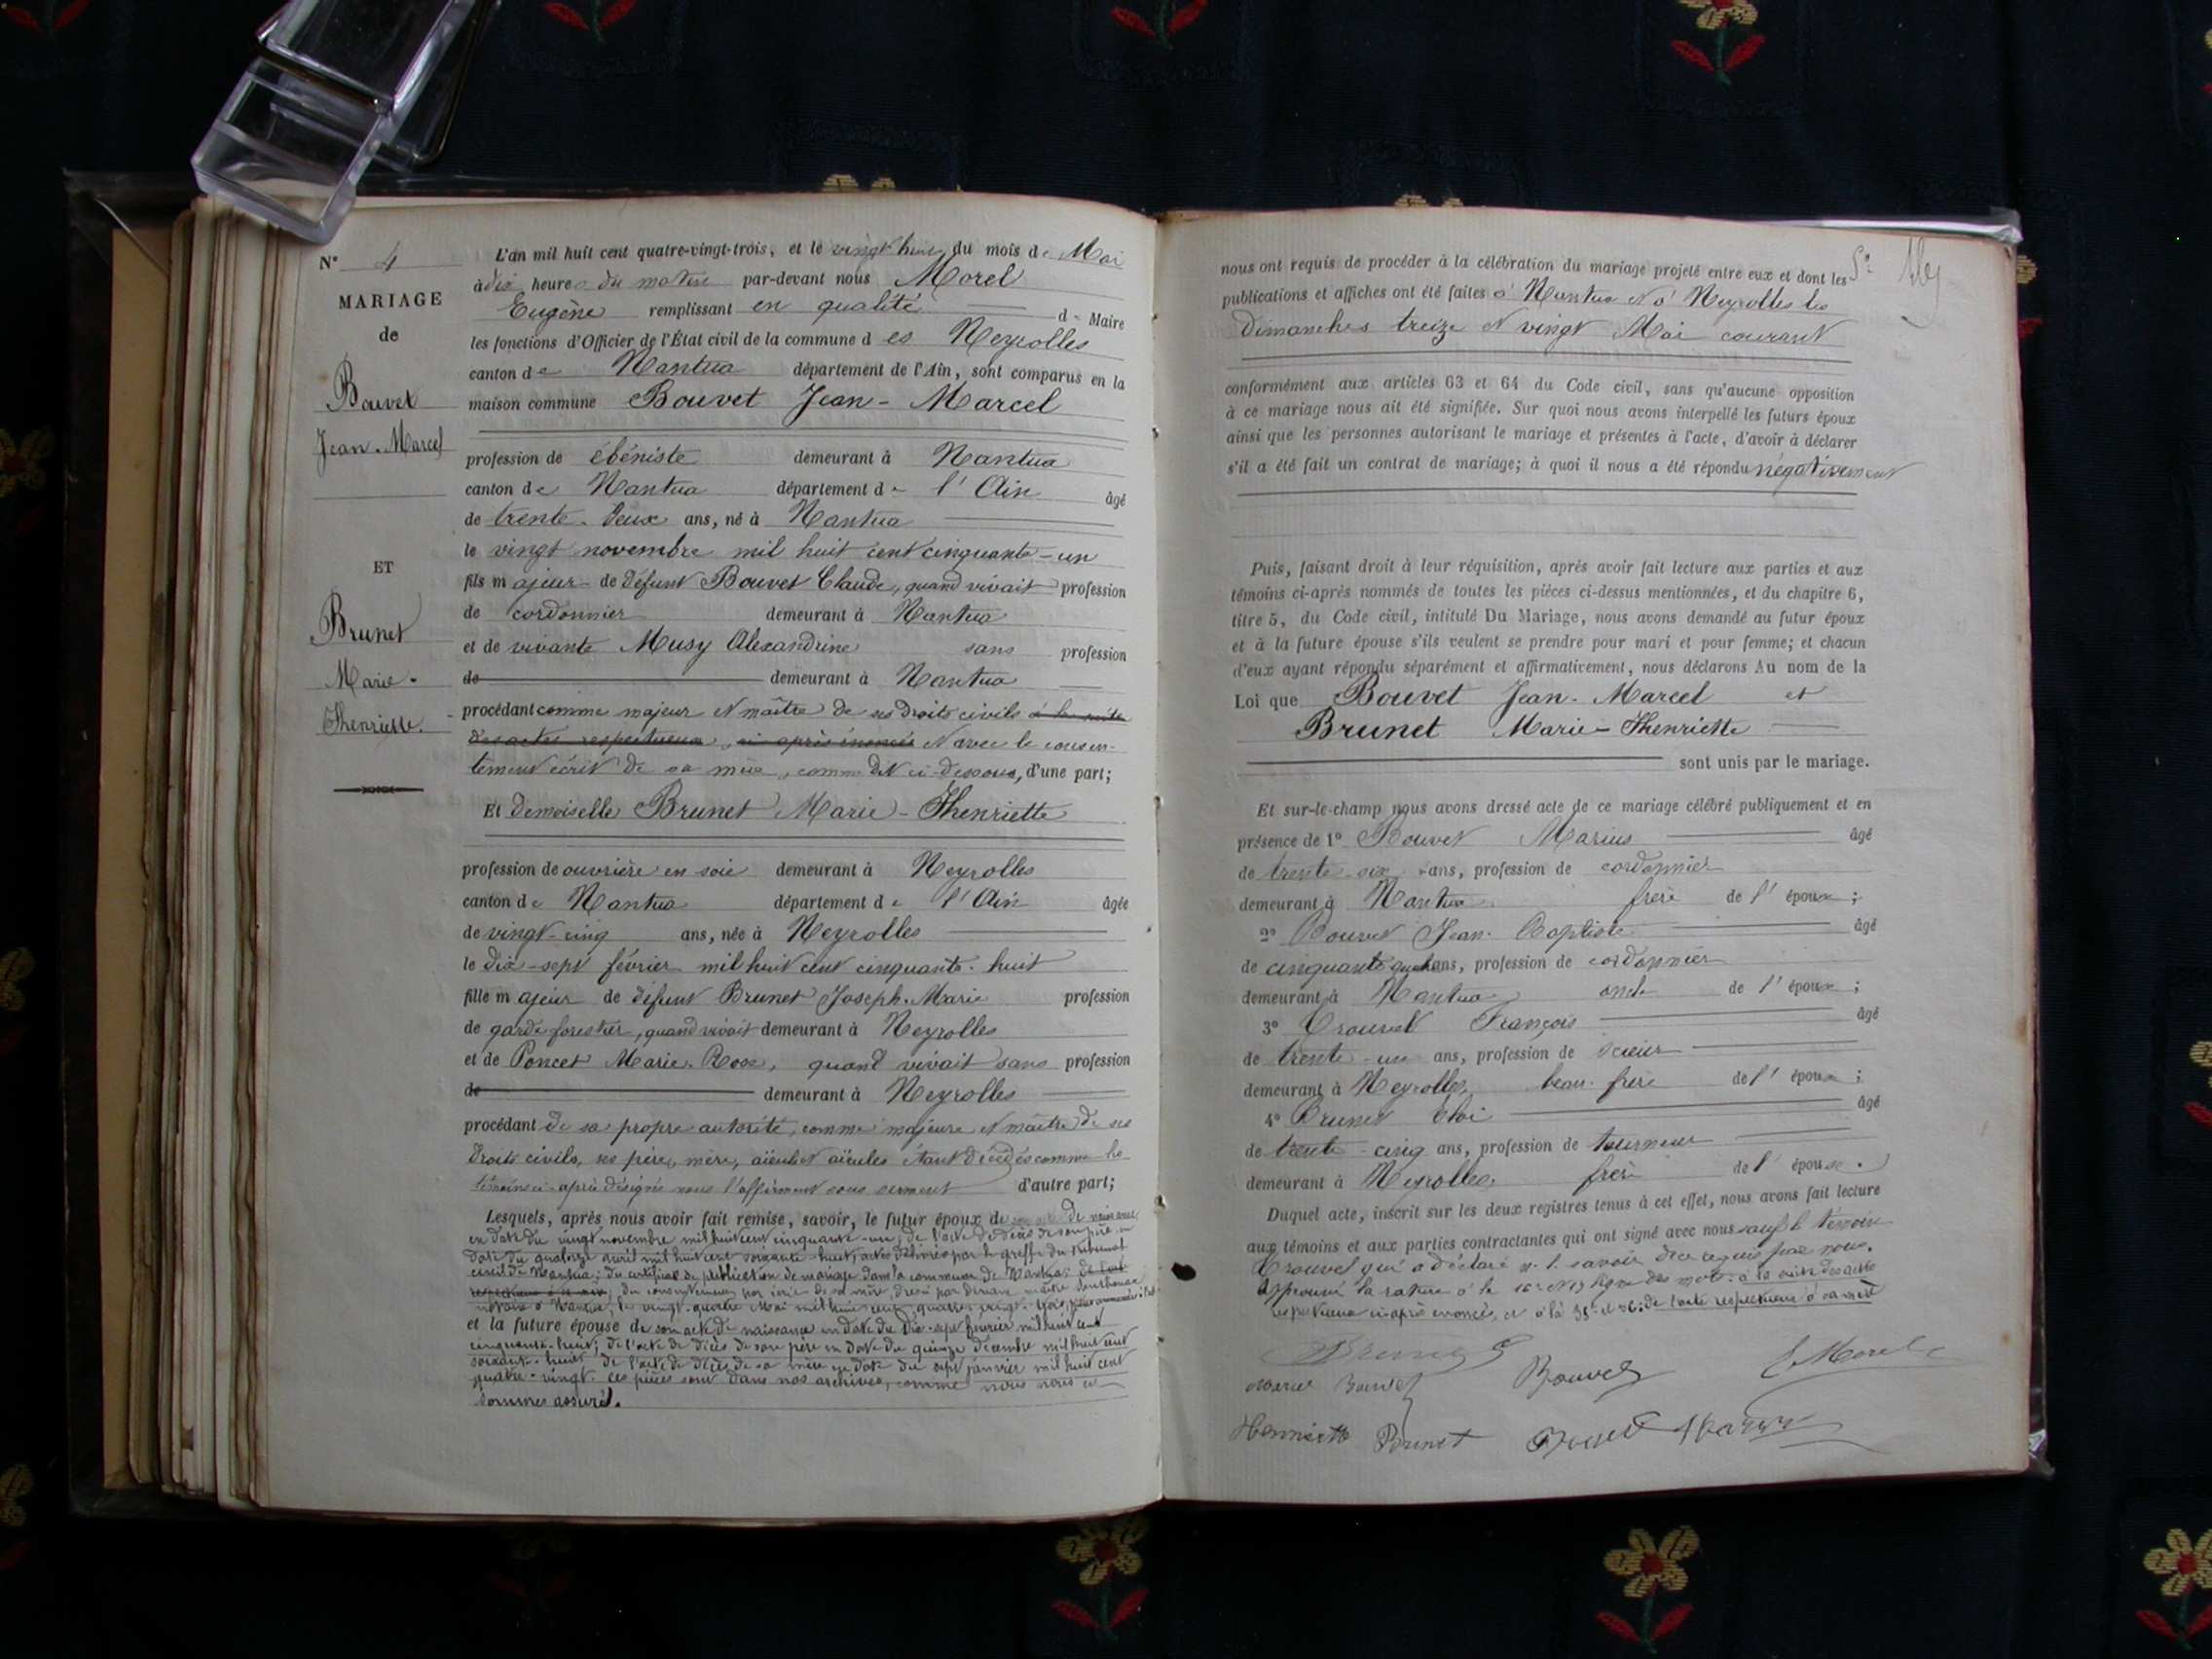 N° 4
MARIAGE
de
Bouvet
Jean-Marcel
ET
Brunet
Marie-
Henriette.
L'an mil huit cent quatre-vingt-trois, et le vingt huit du mois de Mai
à dix heures du matin par-devant nous Morel
Eugène remplissant en qualité de Maire
les fonctions d'Officier de l'État civil de la commune des Neyrolles
canton de Nantua département de l'Ain, sont comparus en la
maison commune Bouvet Jean-Marcel
profession de ébéniste demeurant à Nantua
canton de Nantua département de l'Ain âgé
de trente-deux ans, né à Nantua
le vingt novembre mil huit cent cinquante-un
fils majeur de défunt Bouvet Claude, quand vivait profession
de cordonnier demeurant à Nantua
et de vivante Musy Alexandrine sans profession
de demeurant à Nantua
procédant comme majeur et maître de ses droits civils à la suite
des actes respectueux, ci-après énoncés et avec le consen-
tement écrit de sa mère, comme dit ci-dessous, d'une part;
Et demoiselle Brunet Marie-Henriette
profession de ouvrière en soie demeurant à Neyrolles
canton de Nantua département de l'Ain âgée
de vingt-cinq ans, née à Neyrolles
le dix-sept février mil huit cent cinquante-huit
fille majeur de défunt Brunet Joseph-Marie profession
de garde forestier, quand vivait demeurant à Neyrolles
et de Poncet Marie-Rose, quand vivait sans profession
de demeurant à Neyrolles
procédant de sa propre autorité, comme majeure et maître de ses
droits civils, ses père, mère, aïeuls et aïeules étant décédés comme les
témoins ci-après désignés nous l'affirment sous serment d'autre part;
Lesquels, après nous avoir fait remise, savoir, le futur époux de de naissance
en date du vingt novembre mil huit cent cinquante-un; de l'acte de décès de son père en
date du quatorze avril mil huit cent soixante-huit, actes délivrés par le greffe du tribunal
civil de Nantua; du certificat de publication de mariage dans la commune de Nantua; de l'acte
respectueux à sa mère; du consentement par écrit de sa mère, dressé par devant maître
notaire à Nantua, le vingt-quatre Mai mil huit cent quatre-vingt-trois,
et la future épouse de son acte de naissance en date du dix-sept février mil huit cent
cinquante-huit; de l'acte de décès de son père en date du quinze décembre mil huit cent
soixante-huit, de l'acte de décès de sa mère en date du sept janvier mil huit cent
quatre-vingt. ces pièces sont dans nos archives, comme nous nous en
sommes assuré.
nous ont requis de procéder à la célébration du mariage projeté entre eux et dont les
publications et affiches ont été faites à Nantua et à Neyrolles les
dimanches treize et vingt Mai courant
conformément aux articles 63 et 64 du Code civil, sans qu'aucune opposition
à ce mariage nous ait été signifiée. Sur quoi nous avons interpellé les futurs époux
ainsi que les personnes autorisant le mariage et présentes à l'acte, d'avoir à déclarer
s'il a été fait un contrat de mariage; à quoi il nous a été répondu négativement
Puis, faisant droit à leur réquisition, après avoir fait lecture aux parties et aux
témoins ci-après nommés de toutes les pièces ci-dessus mentionnées, et du chapitre 6,
titre 5, du Code civil, intitulé Du Mariage, nous avons demandé au futur époux
et à la future épouse s'ils veulent se prendre pour mari et pour femme; et chacun
d'eux ayant répondu séparément et affirmativement, nous déclarons Au nom de la
Loi que Bouvet Jean-Marcel et
Brunet Marie-Henriette
sont unis par le mariage.
Et sur-le-champ nous avons dressé acte de ce mariage célébré publiquement et en
présence de 1° Bouvet Marius âgé
de trente-six ans, profession de cordonnier
demeurant à Nantua frère de l'époux;
2° Bouvet Jean-Baptiste âgé
de cinquante ans, profession de cordonnier
demeurant à Nantua oncle de l'époux;
3° Crouvet François âgé
de trente-un ans, profession de scieur
demeurant à Neyrolles, beau-frère de l'époux;
4° Brunet Eloi âgé
de trente-cinq ans, profession de tourneur
demeurant à Neyrolles, frère de l'épouse.
Duquel acte, inscrit sur les deux registres tenus à cet effet, nous avons fait lecture
aux témoins et aux parties contractantes qui ont signé avec nous sauf le témoin
Crouvet qui a déclaré ne le savoir, de ce requis par nous.
Approuvé la rature à la 16e et 17 ligne des mots: à la suite des actes
respectueux ci-après énoncés, et à la 35e et 36: de l'acte respectueux à sa mère
Brunet
E Morel
Marcel Bouvet
Bouvet
Henriette Brunet
Bouvet Marius